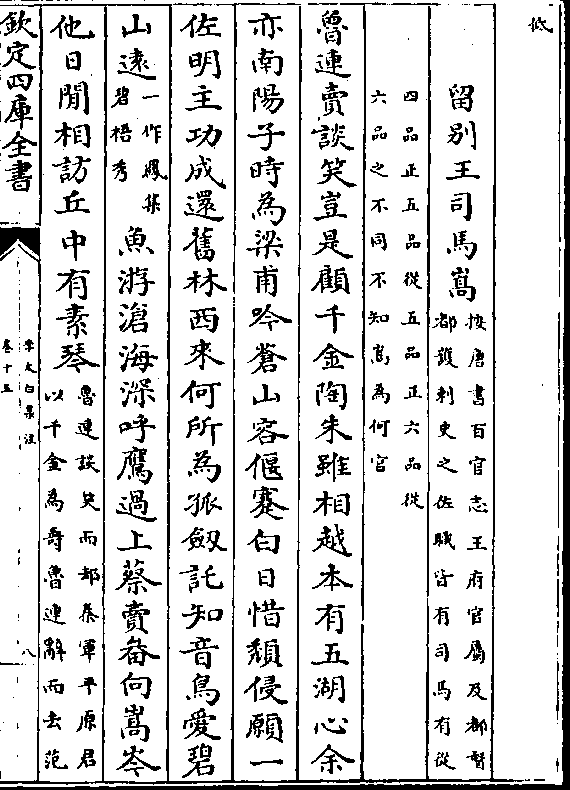 低
留别王司馬嵩
按唐書百官志王府官屬及都督
都護刺史之佐職皆有司馬有從
四品正五品從五品正六品從
六品之不同不知嵩為何官
魯連賣談笑豈是顧千金陶朱雖相越本有五湖心余
亦南陽子時為梁甫吟蒼山容偃蹇白日惜頽侵願一
佐明主功成還舊林西來何所為孤劔託知音鳥愛碧
山逺
一作鳳集
碧梧秀
魚游滄海深呼鷹過上蔡賣畚向嵩岑
他日閒相訪丘中有素琴
魯連談笑而却秦軍平原君
以千金為壽魯連辭而去范
欽定四庫全書
李太白集注
卷十五
八